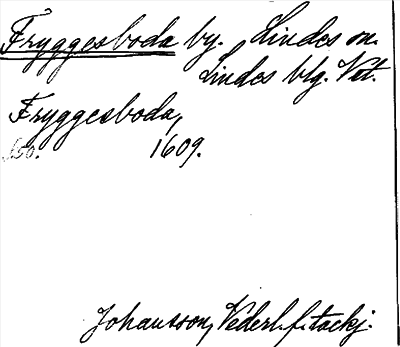 Fryggesboda by. Lindes sn.
Lindes blg. Vst.
Fryggesboda,
1609.
Johansson, Vederl. f. tackj.